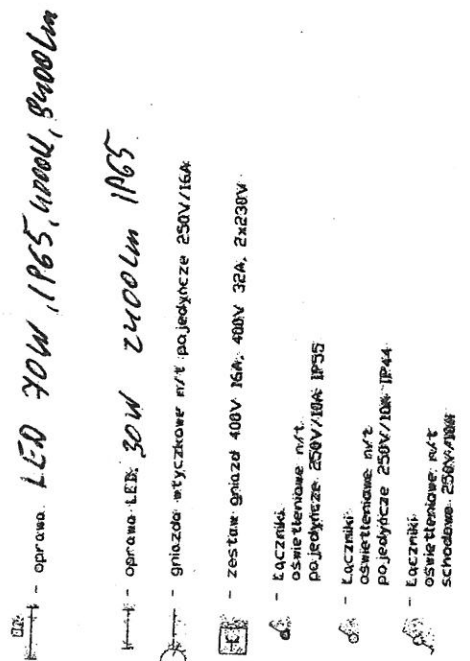 - oprawa LED 70W, IP65, 4000K, 8400lm
- oprawa LED 30W 2400lm IP65
- gniazda wtyczkowe n/t pojedyńcze 250V/16A
- zestaw gniazd 400V 16A, 400V 32A, 2x230V
- Łączniki
oświetleniowe n/t
pojedyńcze 250V/10A IP55
- Łączniki
oświetleniowe n/t
pojedyńcze 250V/10A IP44
- Łączniki
oświetleniowe n/t
schodowe 250V/10A